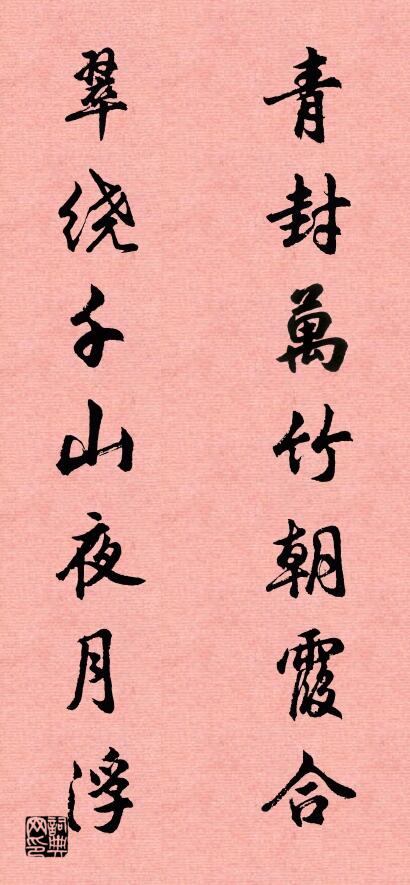 青封萬竹朝霞合
翠绕千山夜月浮
詞典网印